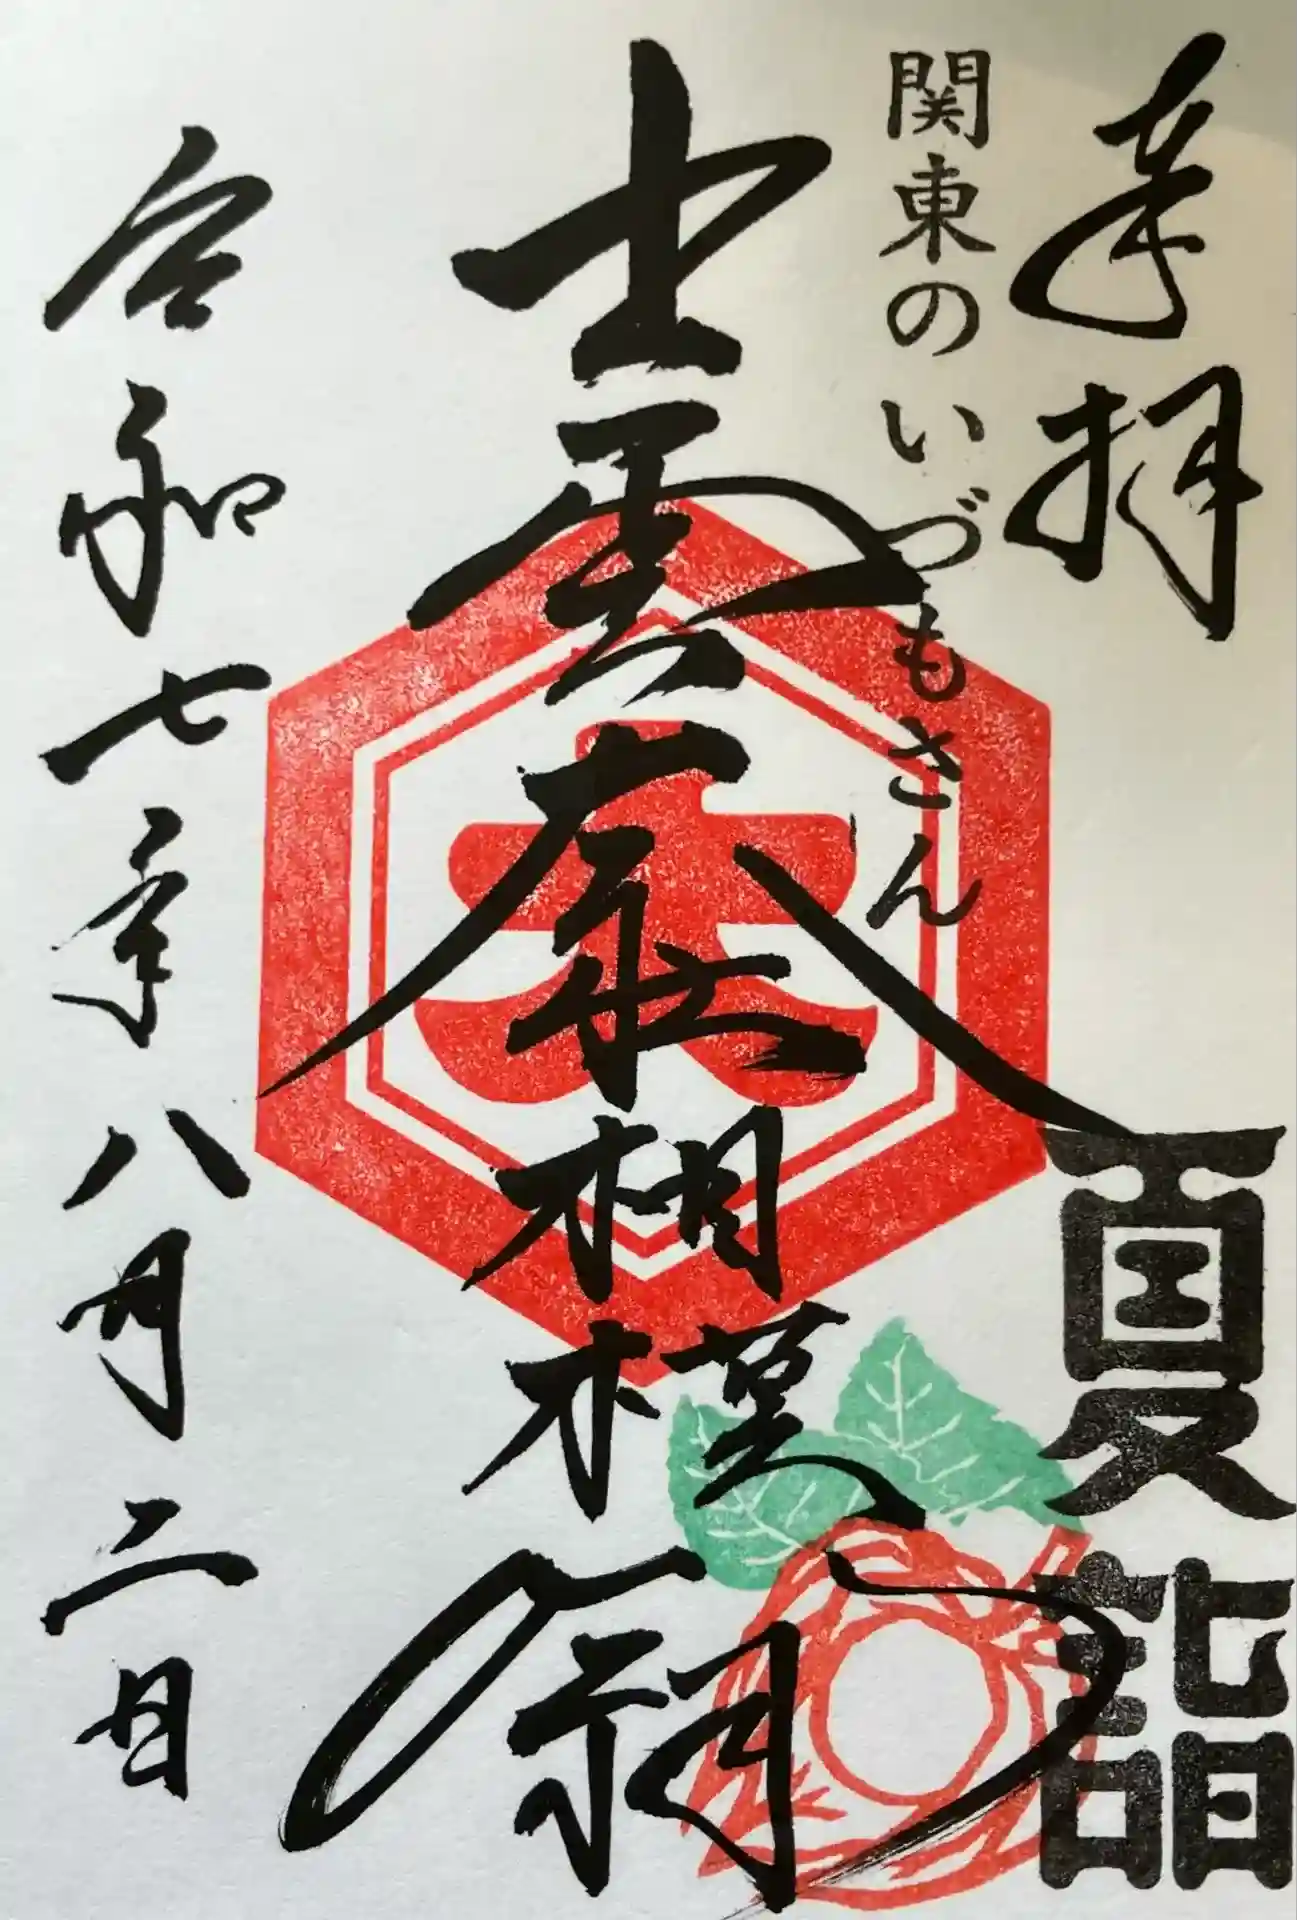 奉拝
関東のいづもさん
出雲大社相模分祠
令和七年八月二日
夏詣
大